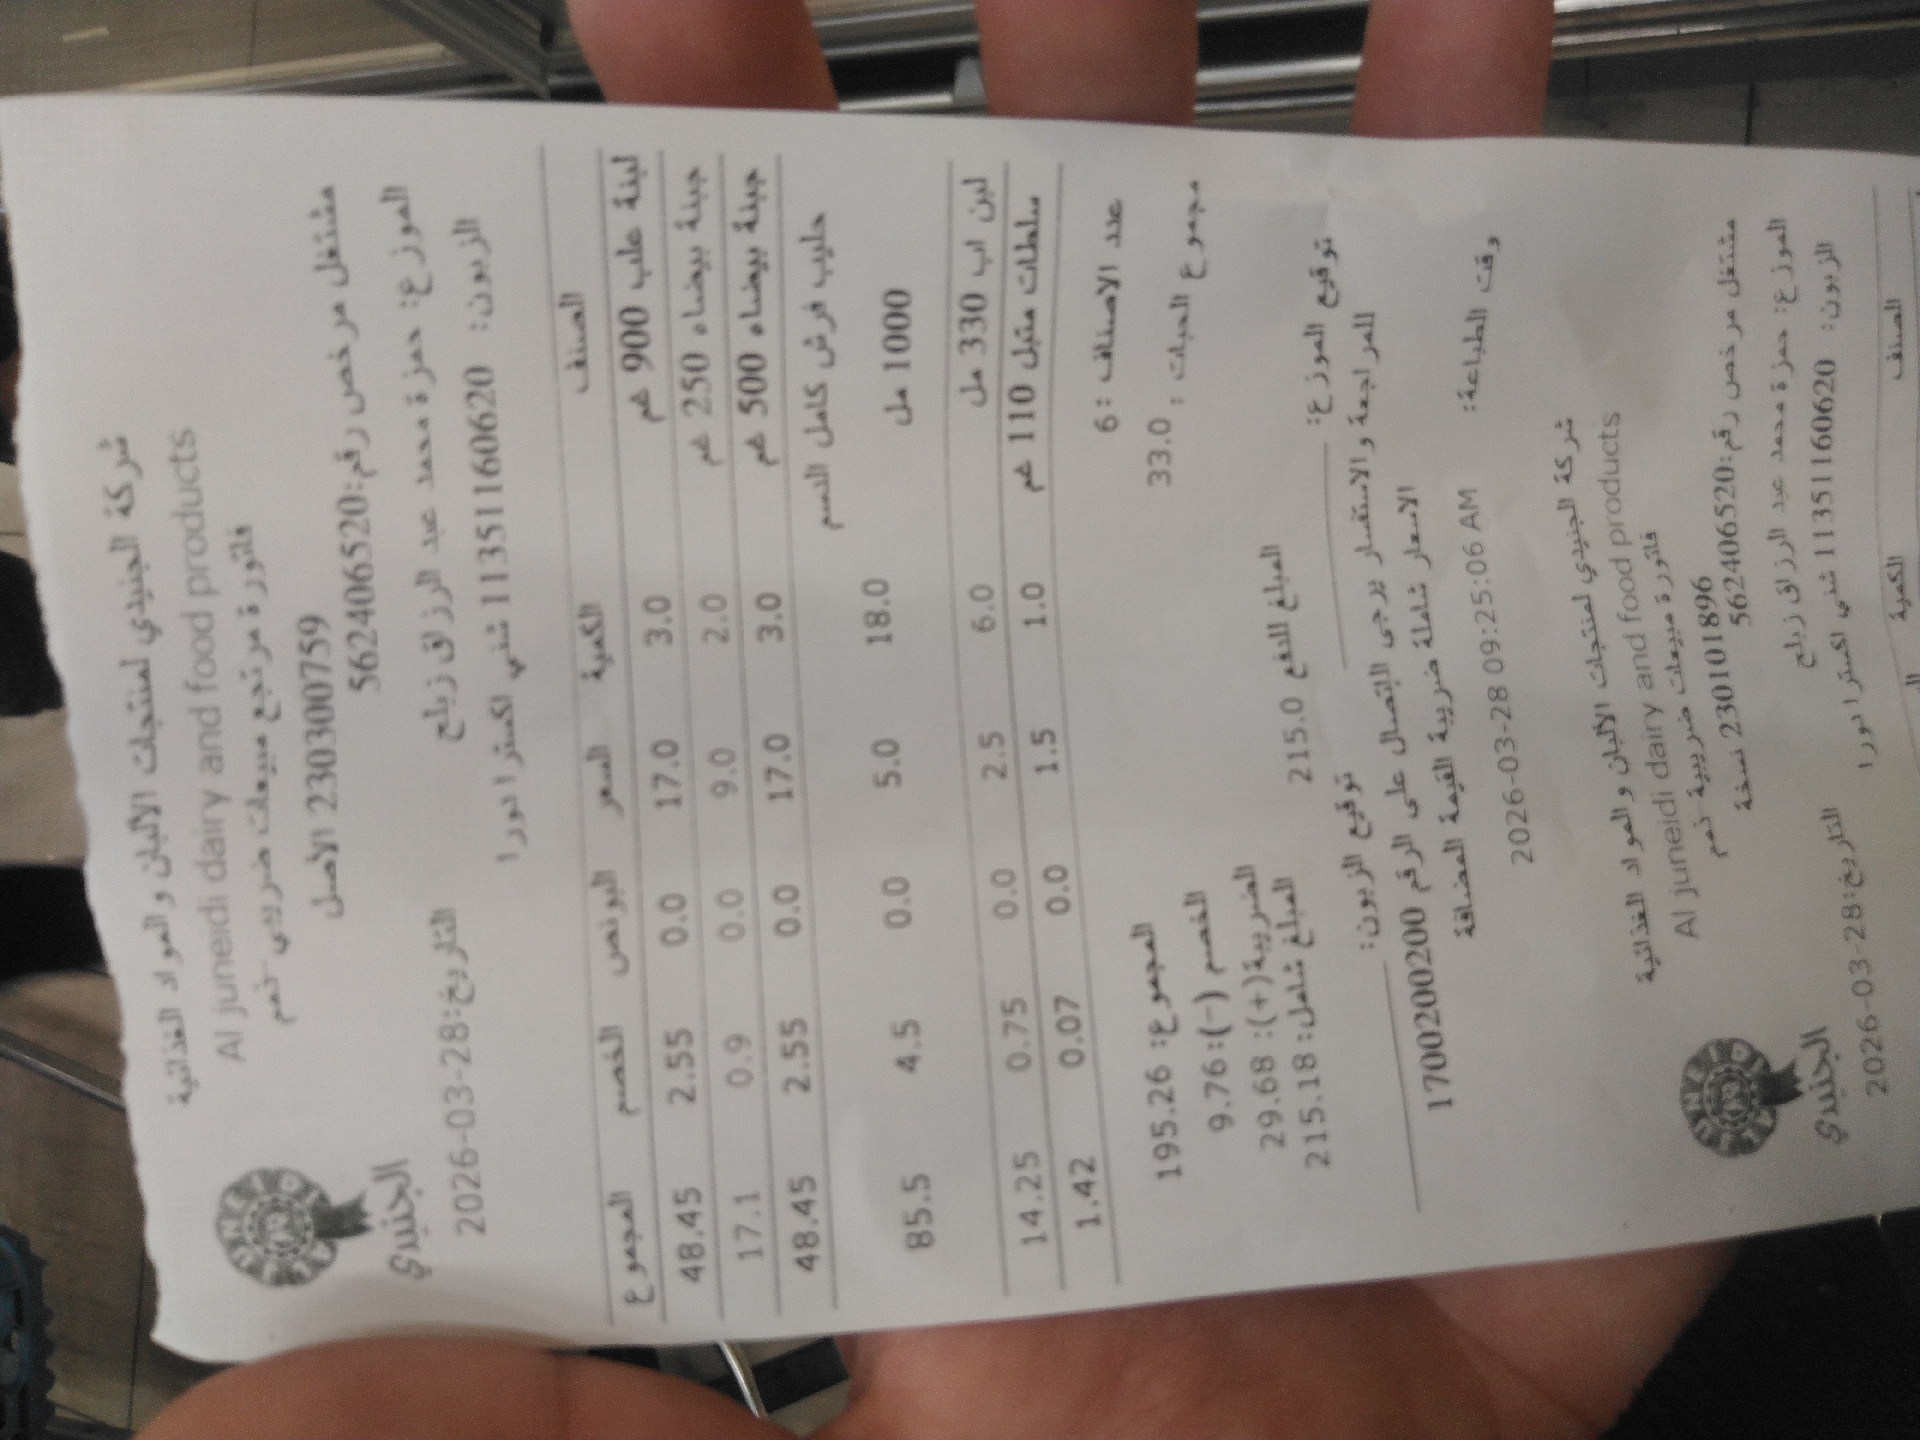 شركة الجنيدي لمنتجات الألبان و المواد الغذائية
Al juneidi dairy and food products
فاتورة مرتجع مبيعات ضريبي -نعم
230300759 الأصل
مشتغل مرخص رقم:562406520
الجنيدي
الموزع: حمزة محمد عبد الرزاق زبلح
التاريخ:28-03-2026
الزبون: 1135116062‎0 شني اكسترا دورا
الصنف الكمية السعر البونص الخصم المجموع
لبنة علب 900 غم 3.0 17.0 0.0 2.55 48.45
جبنة بيضاء 250 غم 2.0 9.0 0.0 0.9 17.1
جبنة بيضاء 500 غم 3.0 17.0 0.0 2.55 48.45
حليب فرش كامل الدسم
1000 مل 18.0 5.0 0.0 4.5 85.5
لبن اب 330 مل 6.0 2.5 0.0 0.75 14.25
سلطات متبل 110 غم 1.0 1.5 0.0 0.07 1.42
عدد الاصناف : 6 المجموع: 195.26
مجموع الحبات : 33.0 الخصم (-): 9.76
الضريبة(+): 29.68
المبلغ للدفع 215.0 المبلغ شامل: 215.18
توقيع الموزع: توقيع الزبون:
للمراجعة والاستفسار يرجى الاتصال على الرقم 1700200200
الاسعار شاملة ضريبة القيمة المضافة
وقت الطباعة: 2026-03-28 09:25:06 AM
شركة الجنيدي لمنتجات الألبان و المواد الغذائية
Al juneidi dairy and food products
فاتورة مبيعات ضريبية -نعم
230101896 نسخة
مشتغل مرخص رقم:562406520
الجنيدي
الموزع: حمزة محمد عبد الرزاق زبلح
التاريخ:28-03-2026
الزبون: 11351160620 شني اكسترا دورا
الصنف الكمية